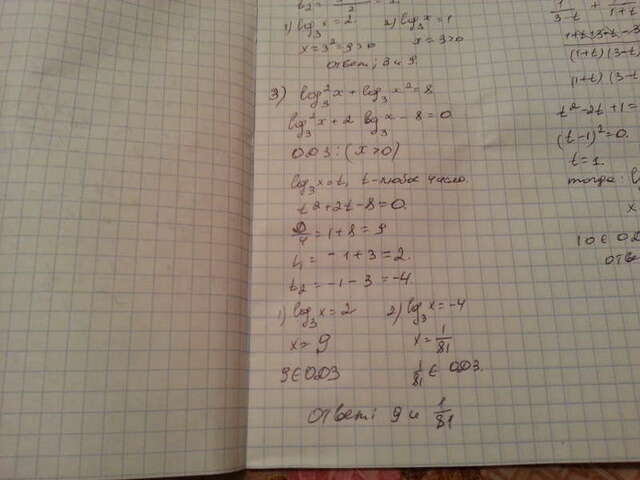 1) log₃x = 2. 2) log₃x = 1
x = 3² = 9 > 0 x = 3 > 0
ответ: 3 и 9.
3) log₃²x + log₃x² = 8
log₃²x + 2 log₃x - 8 = 0.
ОДЗ: (x > 0)
log₃x = t, t - любое число.
t² + 2t - 8 = 0.
D/4 = 1 + 8 = 9
t₁ = -1 + 3 = 2.
t₂ = -1 - 3 = -4.
1) log₃x = 2 2) log₃x = -4
x = 9 x = 1/81
9 ∈ ОДЗ 1/81 ∈ ОДЗ.
ответ: 9 и 1/81
(1+t)(3-t)
(1+t)(3-t
t² - 2t + 1 =
(t-1)² = 0.
t = 1
тогда:
x
10 ∈ ОД
отве